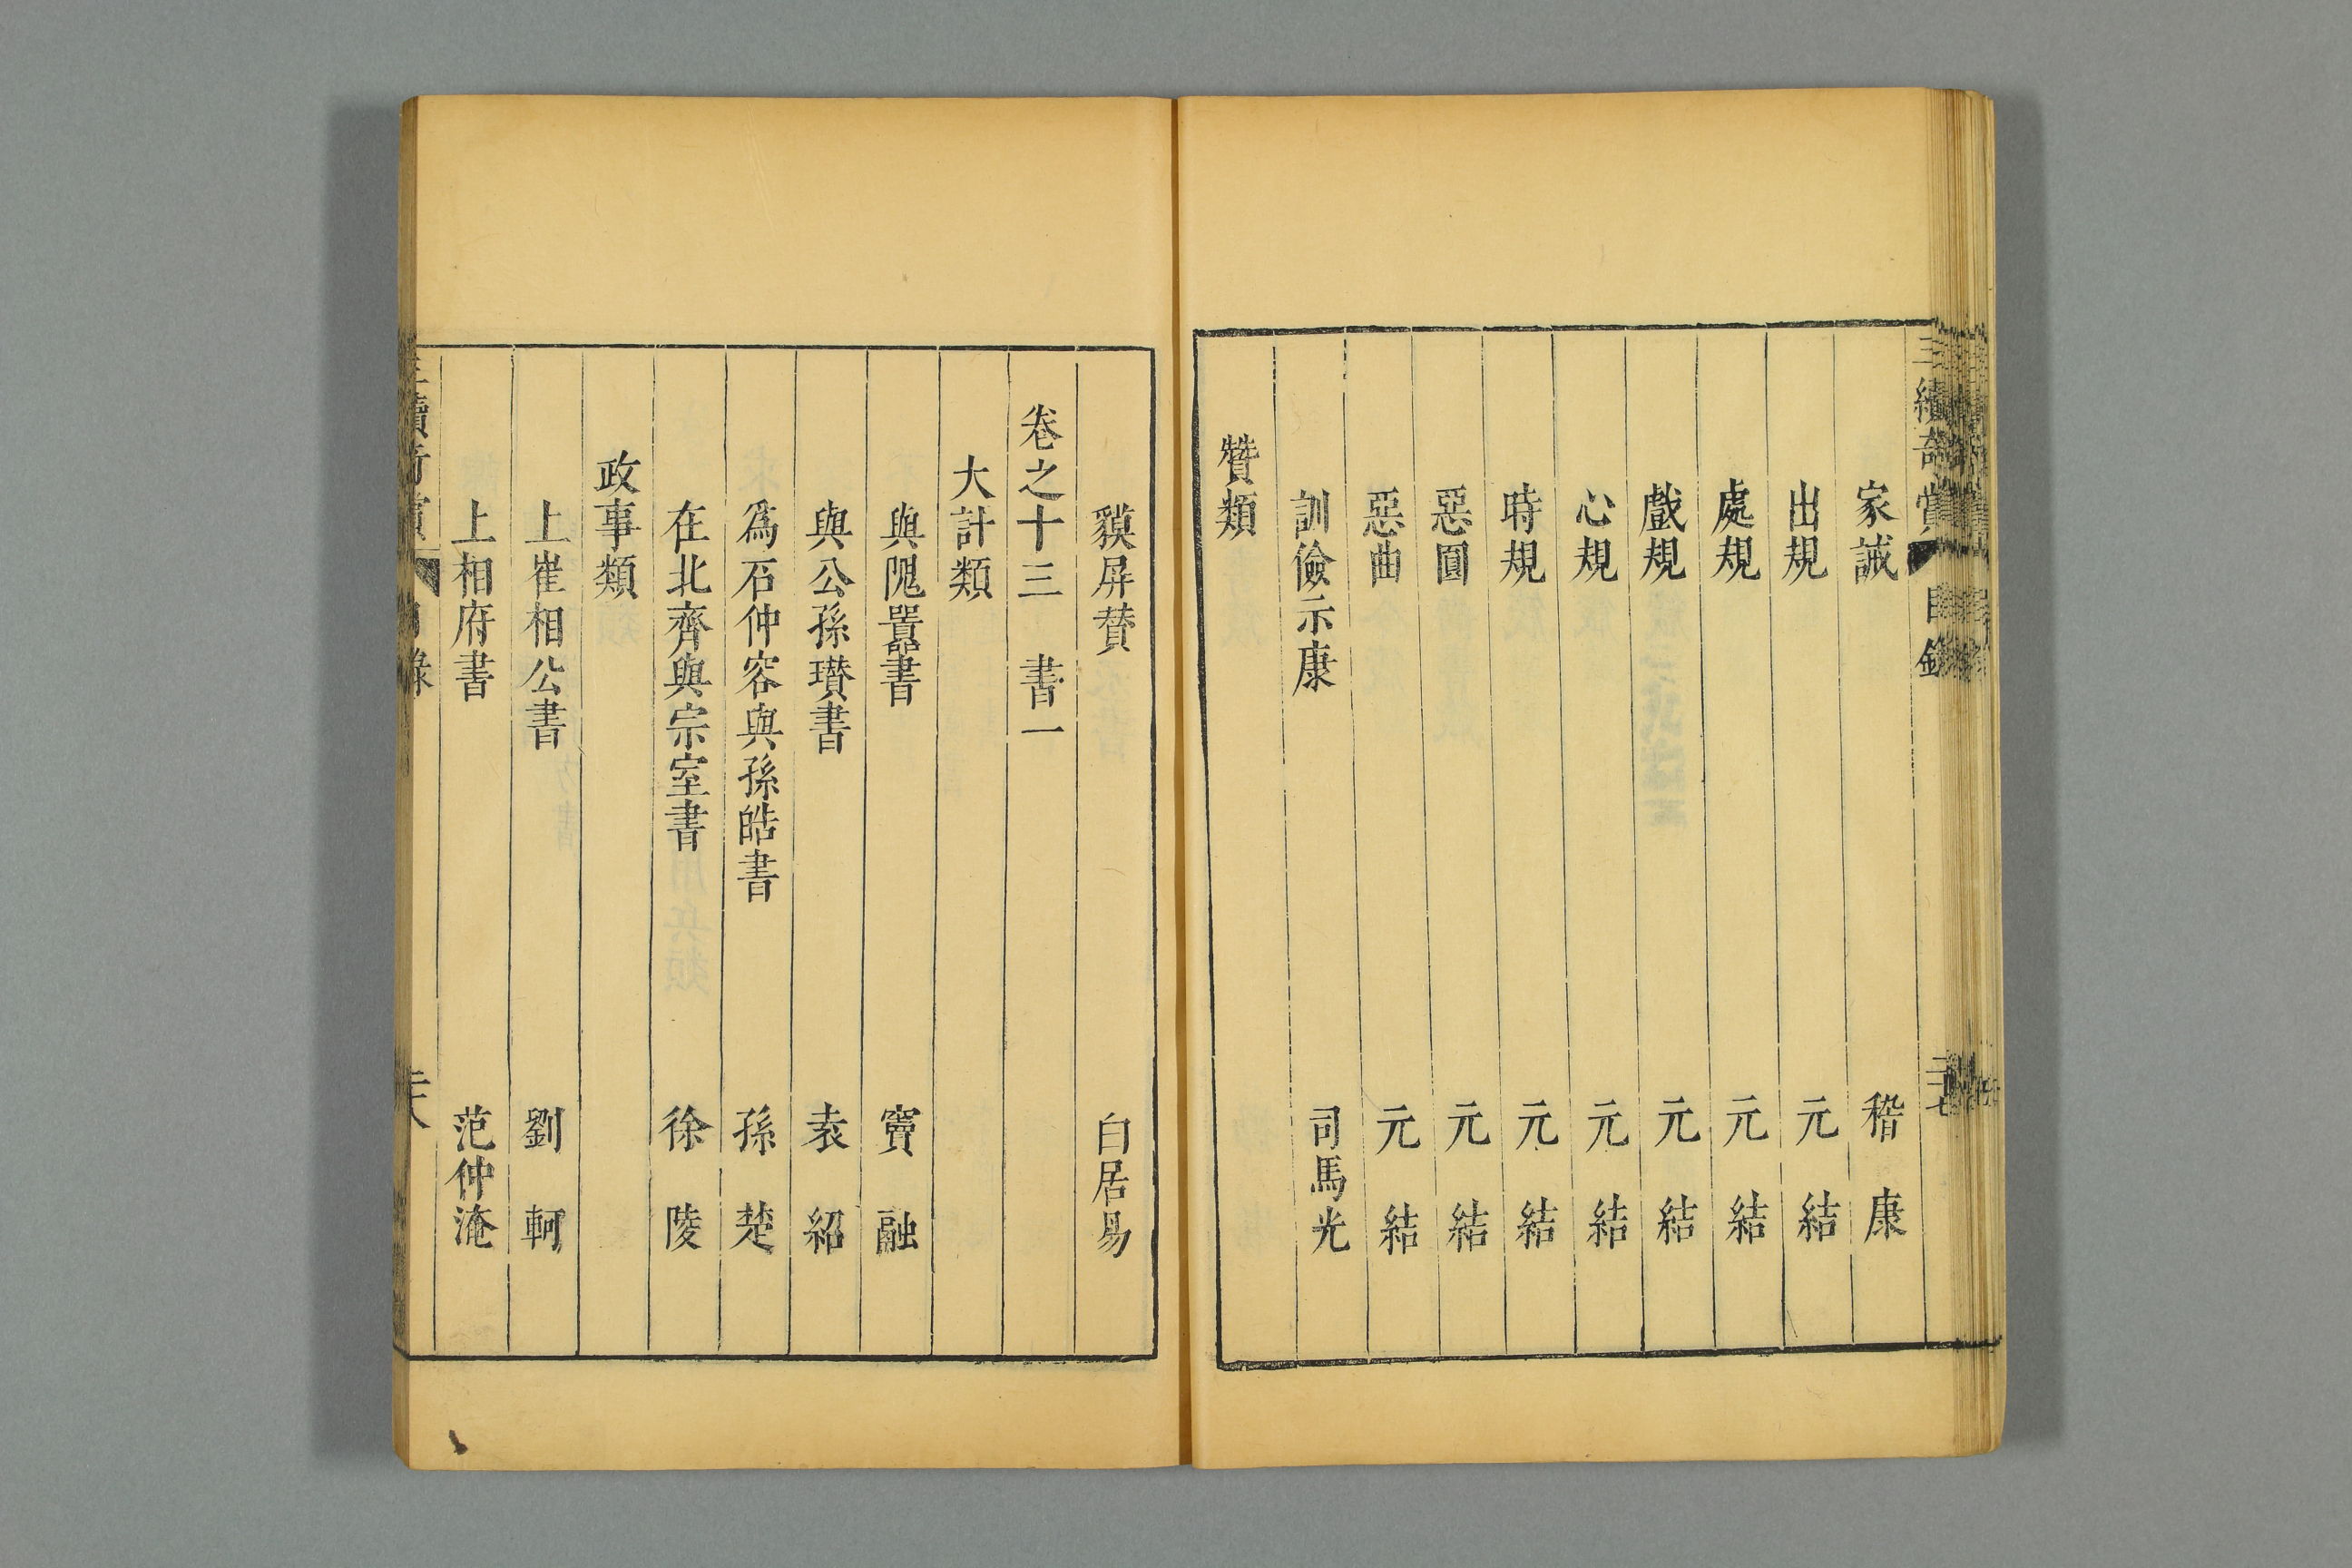 三續奇賞 目錄 二十七
家誡 稽康
出規 元結
處規 元結
戲規 元結
心規 元結
時規 元結
惡圓 元結
惡曲 元結
訓儉示康 司馬光
贊類
貘屏贊 白居易
卷之十三 書一
大計類
與隗囂書 竇融
與公孫瓚書 袁紹
爲石仲容與孫皓書 孫楚
在北齊與宗室書 徐陵
政事類
上崔相公書 劉軻
上相府書 范仲淹